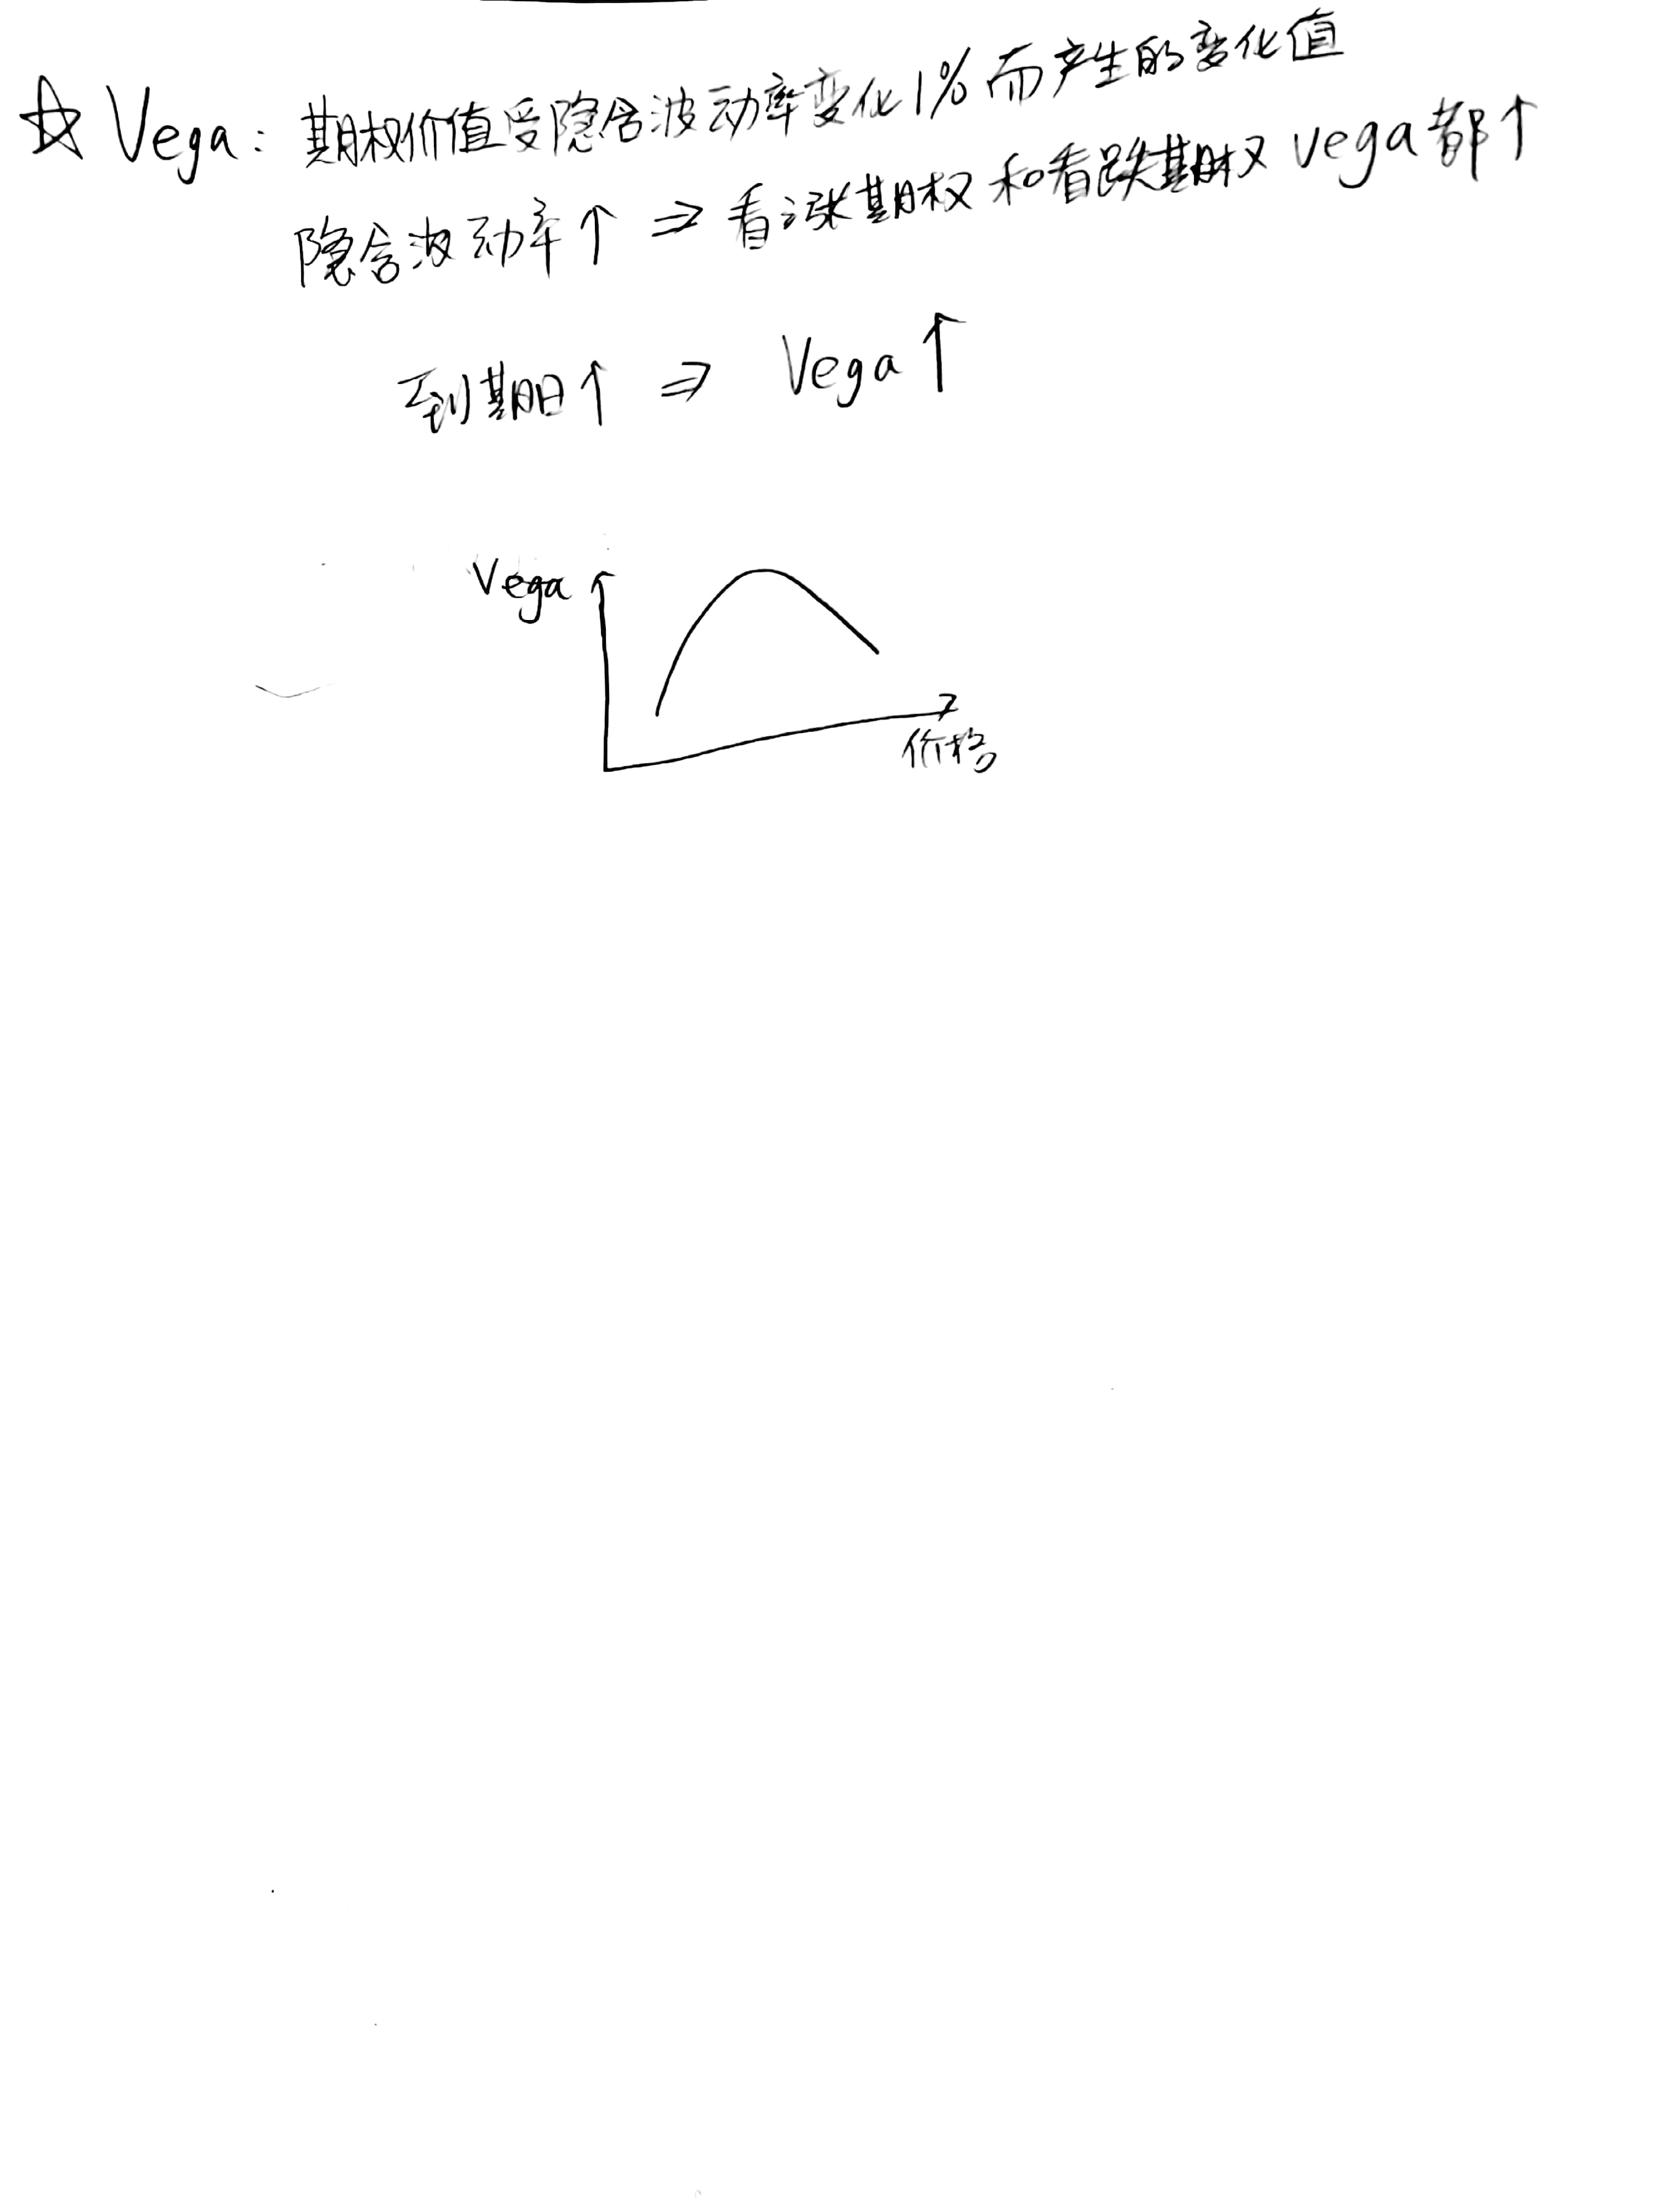 ☆ Vega: 期权价值受隐含波动率变化1%而产生的变化值
隐含波动率↑ ⇒ 看涨期权和看跌期权 vega都↑
到期日↑ ⇒ Vega↑
Vega
价格